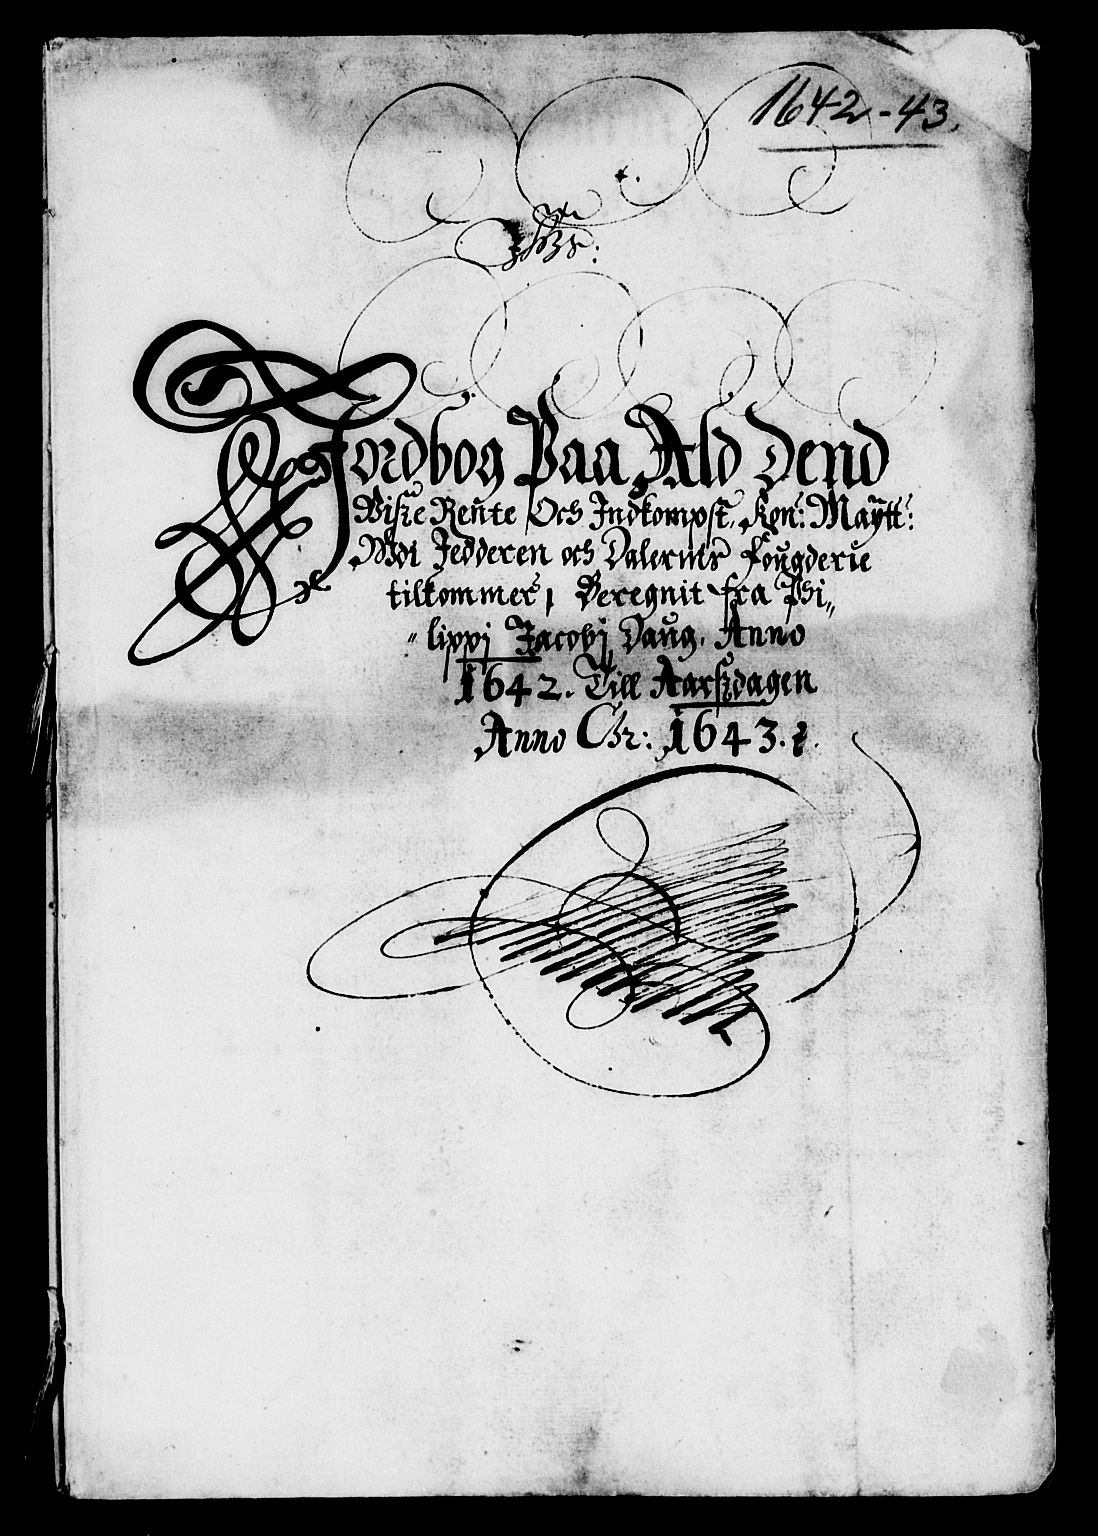 1642-43.
Jordbog Paa Ald Dend
Visse Rente Och Indkompst, Kon: Maytt:
Udi Jedderen och Dalernes fougderie
tilkommer, Beregnit fra Phi„
„lippj Jacobj Daug, Anno
1642. Till Aarsdagen
Anno Chr: 1643.